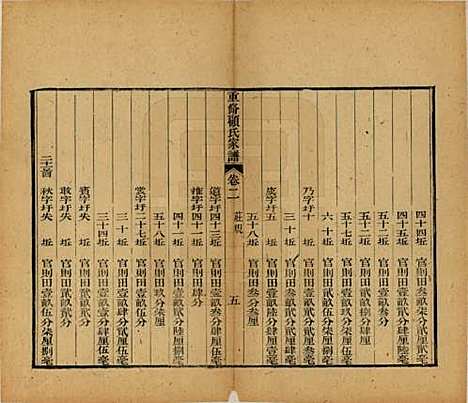 四十四坵　官則田壹畝肆分貳厘貳毫
四十五坵　官則田貳畝肆分陸毫
五十二坵　官則田叁畝貳分柒厘捌毫
五十七坵　官則田壹畝肆分柒厘
六十坵　官則田壹畝伍分
乃字圩十坵　官則田貳畝貳厘叁毫
三十坵　官則田叁畝貳分肆厘肆毫
虞字圩五坵　官則田壹畝
五十八坵　官則田叁分叁厘
重脩顧氏家譜　卷二　莊規　五
道字圩四十三坵　官則田壹畝貳分
雍字圩四十二坵　官則田肆分
四十一坵　官則田貳畝
五十八坵　官則田玖分柒厘
裳字圩二十七坵　官則田壹畝伍分
三十坵　官則田壹畝肆分貳厘伍毫
三十四坵　官則田壹畝陸分肆厘伍毫
賓字圩失坵　官則田壹畝貳分
敢字圩失坵　官則田貳畝玖分
二十三啚　秋字圩失坵　官則田壹畝伍分柒厘捌毫